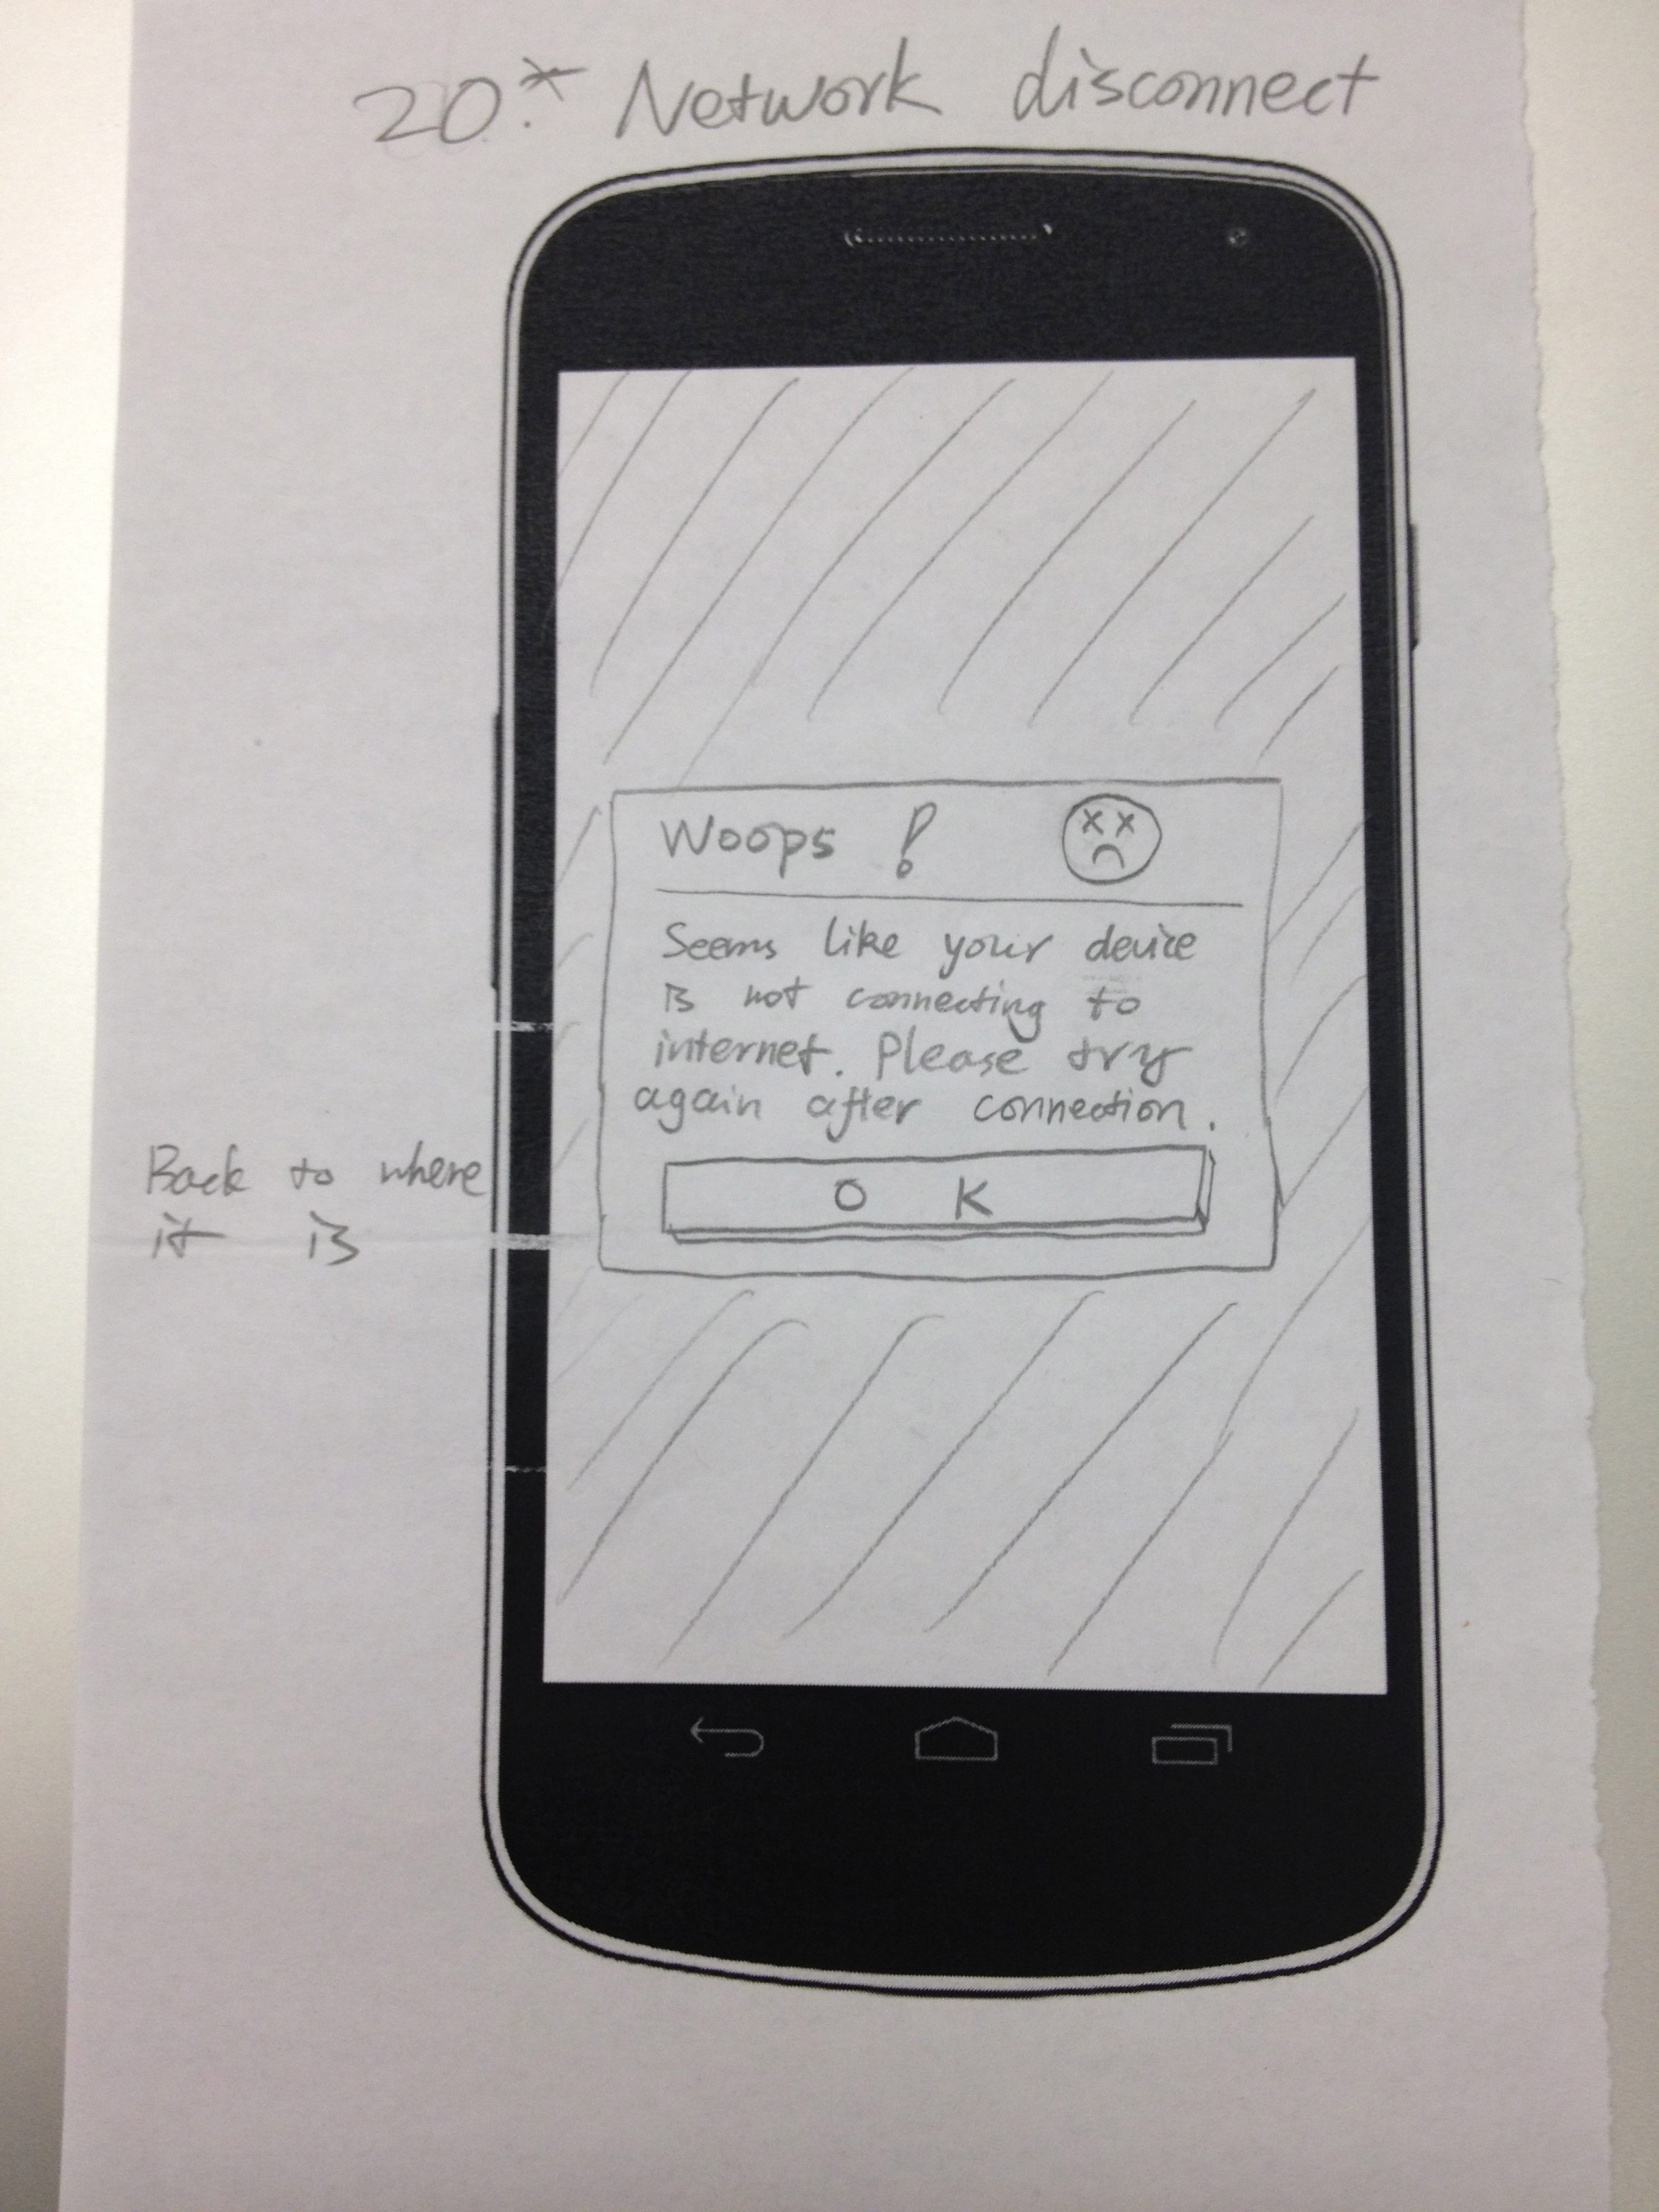 20.* Network disconnect
Woops !
Seems like your device
is not connecting to
internet. Please try
again after connection.
O K
Back to where
it is